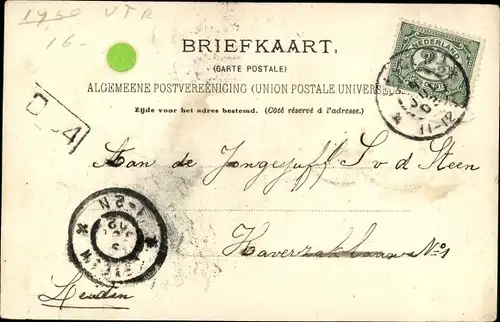 1950 UTR
16-
BRIEFKAART,
(CARTE POSTALE)
ALGEMEENE POSTVEREENIGING (UNION POSTALE UNIVERSELLE)
Zijde voor het adres bestemd. (Côté réservé à l'adresse.)
NEDERLAND
2½
11-12
Aan de Jongejuff S v d Steen
1-2N
No 1
Leiden